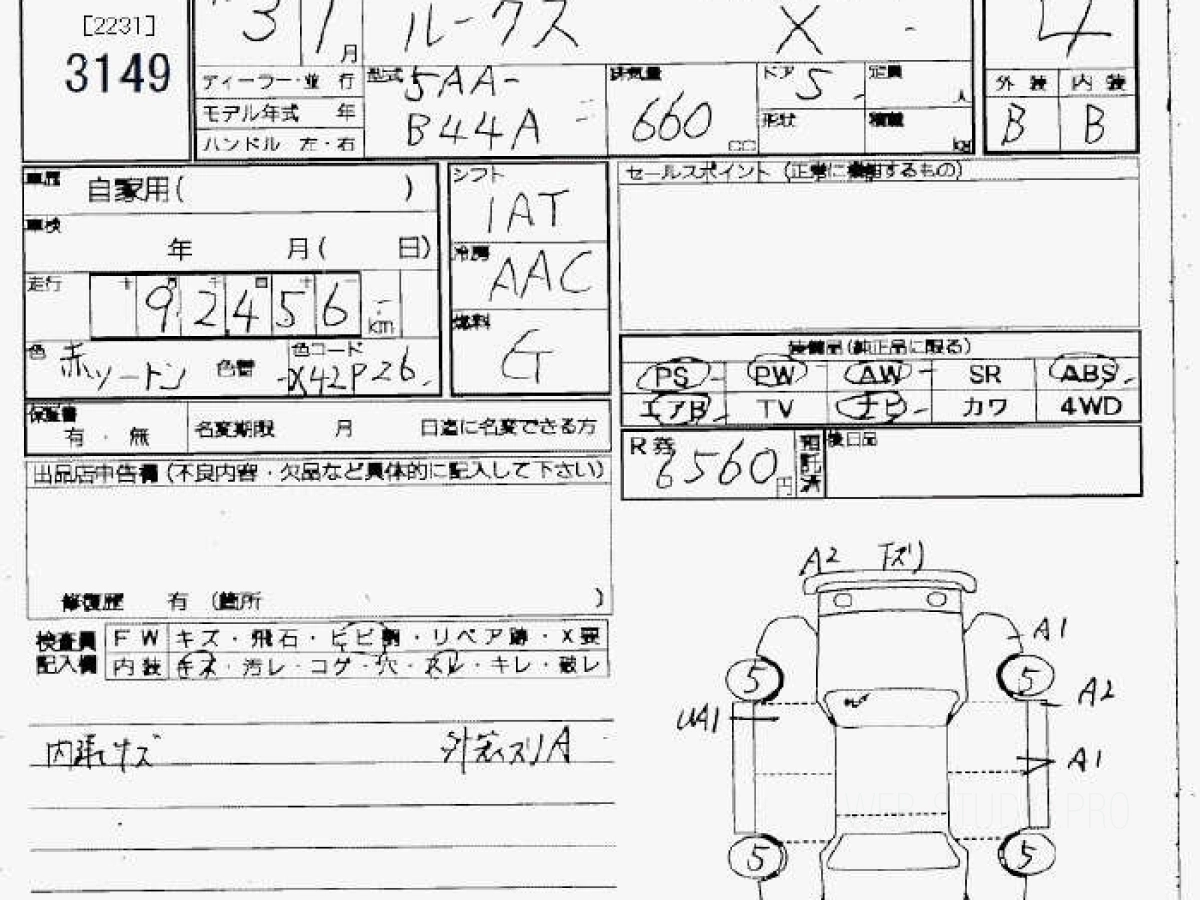 [2231]
3149
31 月 ルークス X - 4
ディーラー・並 行 型式 5AA- 排気量 ドア 5 定員 人 外 装 内 装
モデル年式 年 B44A 660 cc 形状 積載 kg B B
ハンドル 左・右
車歴 自家用( ) シフト セールスポイント (正常に機能するもの)
1AT
車検 年 月( 日) 冷房
AAC
走行 十 万 千 百 十 一
92456 km 燃料
G 装備品(純正品に限る)
色 赤ツートン 色替 色コード X42P26 PS PW AW SR ABS
エアB TV ナビ カワ 4WD
保証書 有・無 名変期限 月 日迄に名変できる方
R券 6560円 預託済 後日品
出品店申告欄(不良内容・欠品など具体的に記入して下さい)
修復歴 有 (箇所 )
検査員 FW キズ・飛石・ヒビ割・リペア跡・X要
記入欄 内装 キズ・汚レ・コゲ・穴・スレ・キレ・破レ
内張キズ 外装スリA
A2 下ズリ
A1
5 5
A2
UA1
A1
WEB STUDIO PRO
5 5